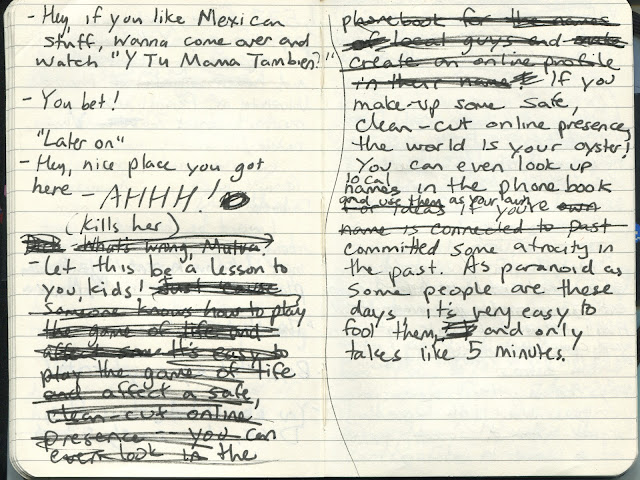 - Hey, if you like Mexican
stuff, wanna come over and
watch "Y Tu Mama Tambien?"
- You bet!
"Later on"
- Hey, nice place you got
here - AHHH!
(kills her)
- What's wrong,
- Let this be a lesson to
you, kids! Just 'cause
someone knows how to play
the game of life and
affect some It's easy to
play the game of life
and affect a safe,
clean-cut online
presence -- you can
even look in the
phonebook for the names
of local guys and make
create an online profile
in their name! If you
make-up some safe,
clean-cut online presence,
the world is your oyster!
You can even look up
local
names in the phonebook
and use them as your own
for ideas if you're own
name is connected to past
committed some atrocity in
the past. As paranoid as
some people are these
days, it's very easy to
fool them, and only
takes like 5 minutes!